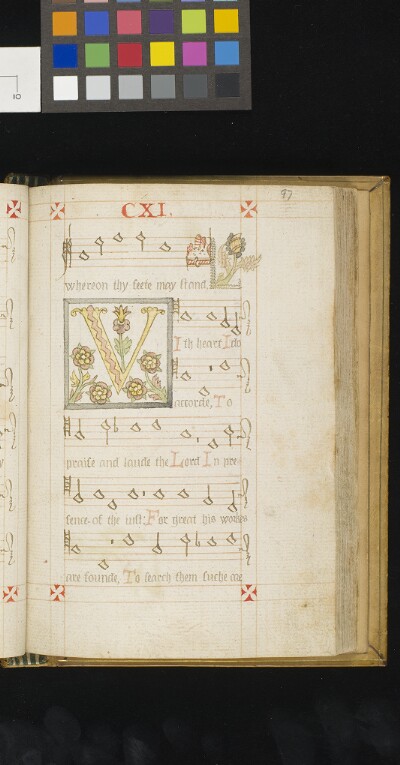 97
CXI.
whereon thy feete may stand,
VIth heart I do
accorde, To
praise and laude the Lord In pre-
sence of the iust: For great his workes
are founde, To search them suche are
10